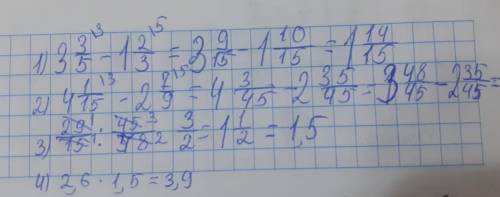 1) 3 3/5 \3 - 1 2/3 \5 = 3 9/15 - 1 10/15 = 1 14/15
2) 4 1/15 \3 - 2 7/9 \5 = 4 3/45 - 2 35/45 = 3 48/45 - 2 35/45 =
3) 29/15 : 58/45 3/2 = 1 1/2 = 1,5
4) 2,6 · 1,5 = 3,9